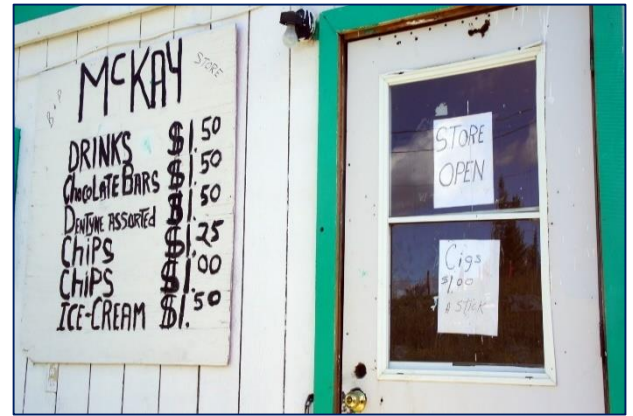 McKAY
STORE
DRINKS $1.50
CHOCOLATE BARS $1.50
DENTYNE ASSORTED $1.50
CHiPS $1.25
CHiPS $1.00
ICE-CREAM $1.50
STORE
OPEN
Cigs
$1.00
A STICK